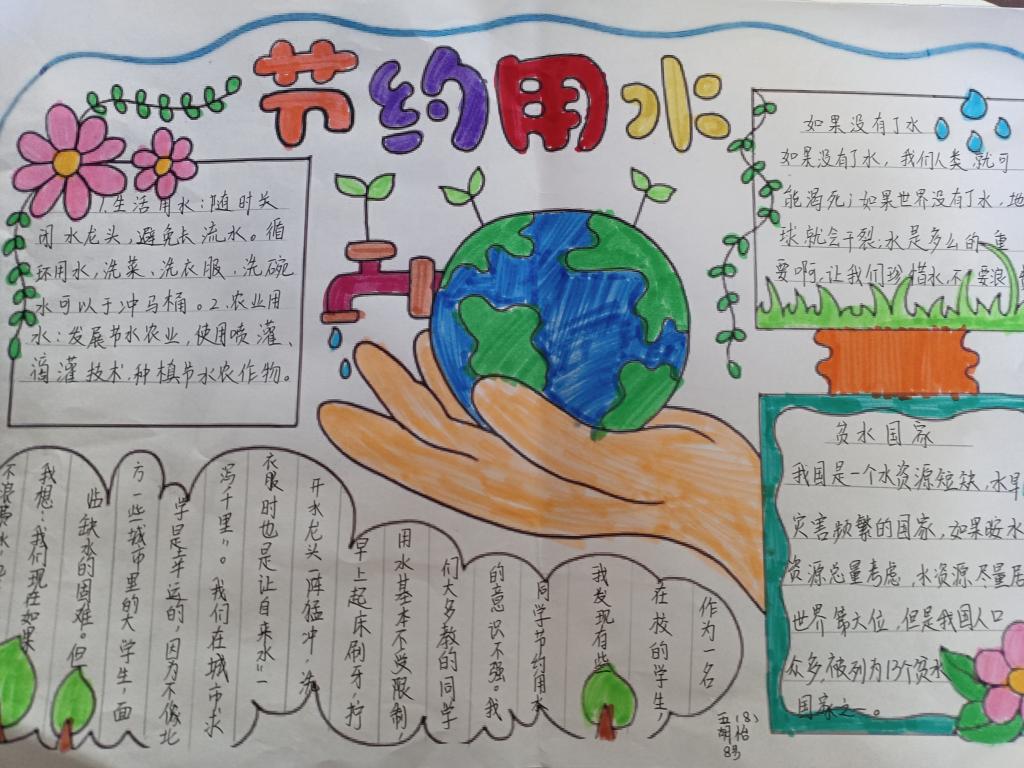 节约用水
1.生活用水:随时关
闭水龙头,避免长流水。循
环用水,洗菜、洗衣服、洗碗
水可以于冲马桶。2.农业用
水:发展节水农业,使用喷灌、
滴灌技术,种植节水农作物。
如果没有了水
如果没有了水,我们人类就可
能渴死;如果世界没有了水,地
球就会干裂;水是多么的重
要啊,让我们珍惜水,不要浪
贫水国家
我国是一个水资源短缺,水旱
灾害频繁的国家,如果按水
资源总量考虑,水资源尽量居
世界第六位,但是我国人口
众多,被列为13个贫水
国家之一。
作为一名
在校的学生,
我发现有些
同学节约用水
的意识不强。我
们大多教的同学
用水基本不受限制,
早上起床刷牙,拧
开水龙头一阵猛冲,洗
衣服时也是让自来水"一
泻千里"。我们在城市求
学是幸运的,因为不像北
方一些城市里的大学生,面
临缺水的困难。但
我想:我们现在如果
五(8)
胡怡
8号